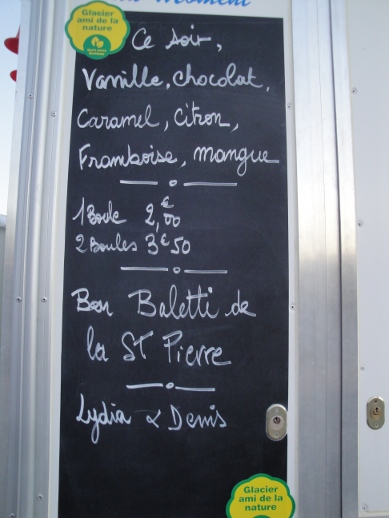 Glacier
ami de la
nature
Ce soir,
Vanille, chocolat,
Caramel, Citron,
Framboise, mangue
1 Boule 2,€00
2 Boules 3€50
Bon Baletti de
la ST Pierre
Lydia & Denis
Glacier
ami de la
nature